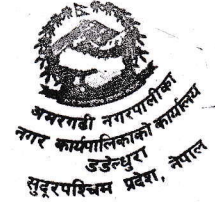 अमरगढी नगरपालीका
नगर कार्यपालिकाको कार्यालय
डडेल्धुरा
सुदूरपश्चिम प्रदेश, नेपाल